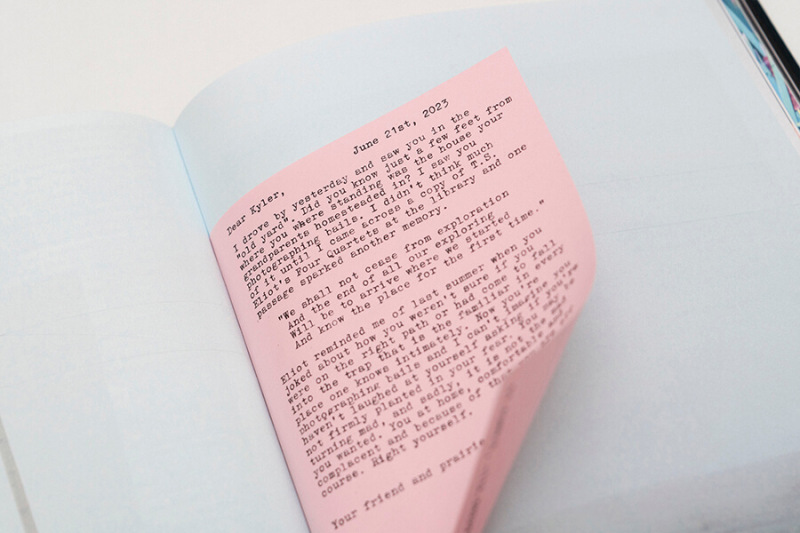 June 21st, 2023
Dear Kyler,
I drove by yesterday and saw you in the
"old yard". Did you know just a few feet from
where you where standing was the house your
grandparents homesteaded in? I saw you
photographing bails. I didn't think much
of it until I came across a copy of T.S.
Eliot's Four Quartets at the library and one
passage sparked another memory.
"We shall not cease from exploration
And the end of all our exploring
Will be to arrive where we started
And know the place for the first time."
Eliot reminded me of last summer when you
joked about how you weren't sure if you
were on the right path or had come to fall
into the trap that is the familiar in every
place one knows intimately. Now you're
photographing bails and I can't imagine you
haven't laughed at yourself asking if you're
not firmly planted in your fear. You may be
turning mad, and sadly, it is
you wanted. You at home, comfortable
complacent and because of
course. Right yourself.
Your friend and prairie